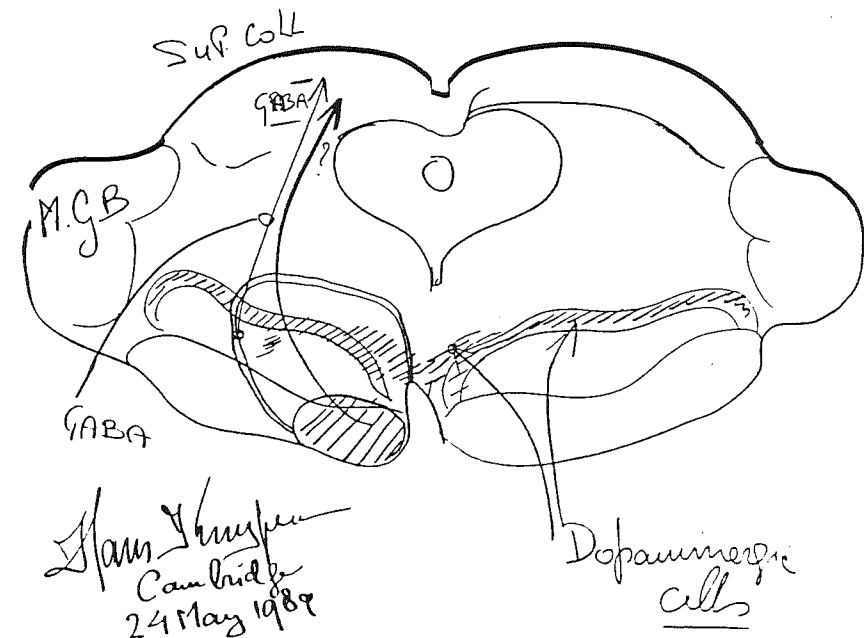 Sup. Coll
GABA
?
M.GB
GABA
Hans Kuypers
Cambridge
24 May 1989
Dopaminergic
cells